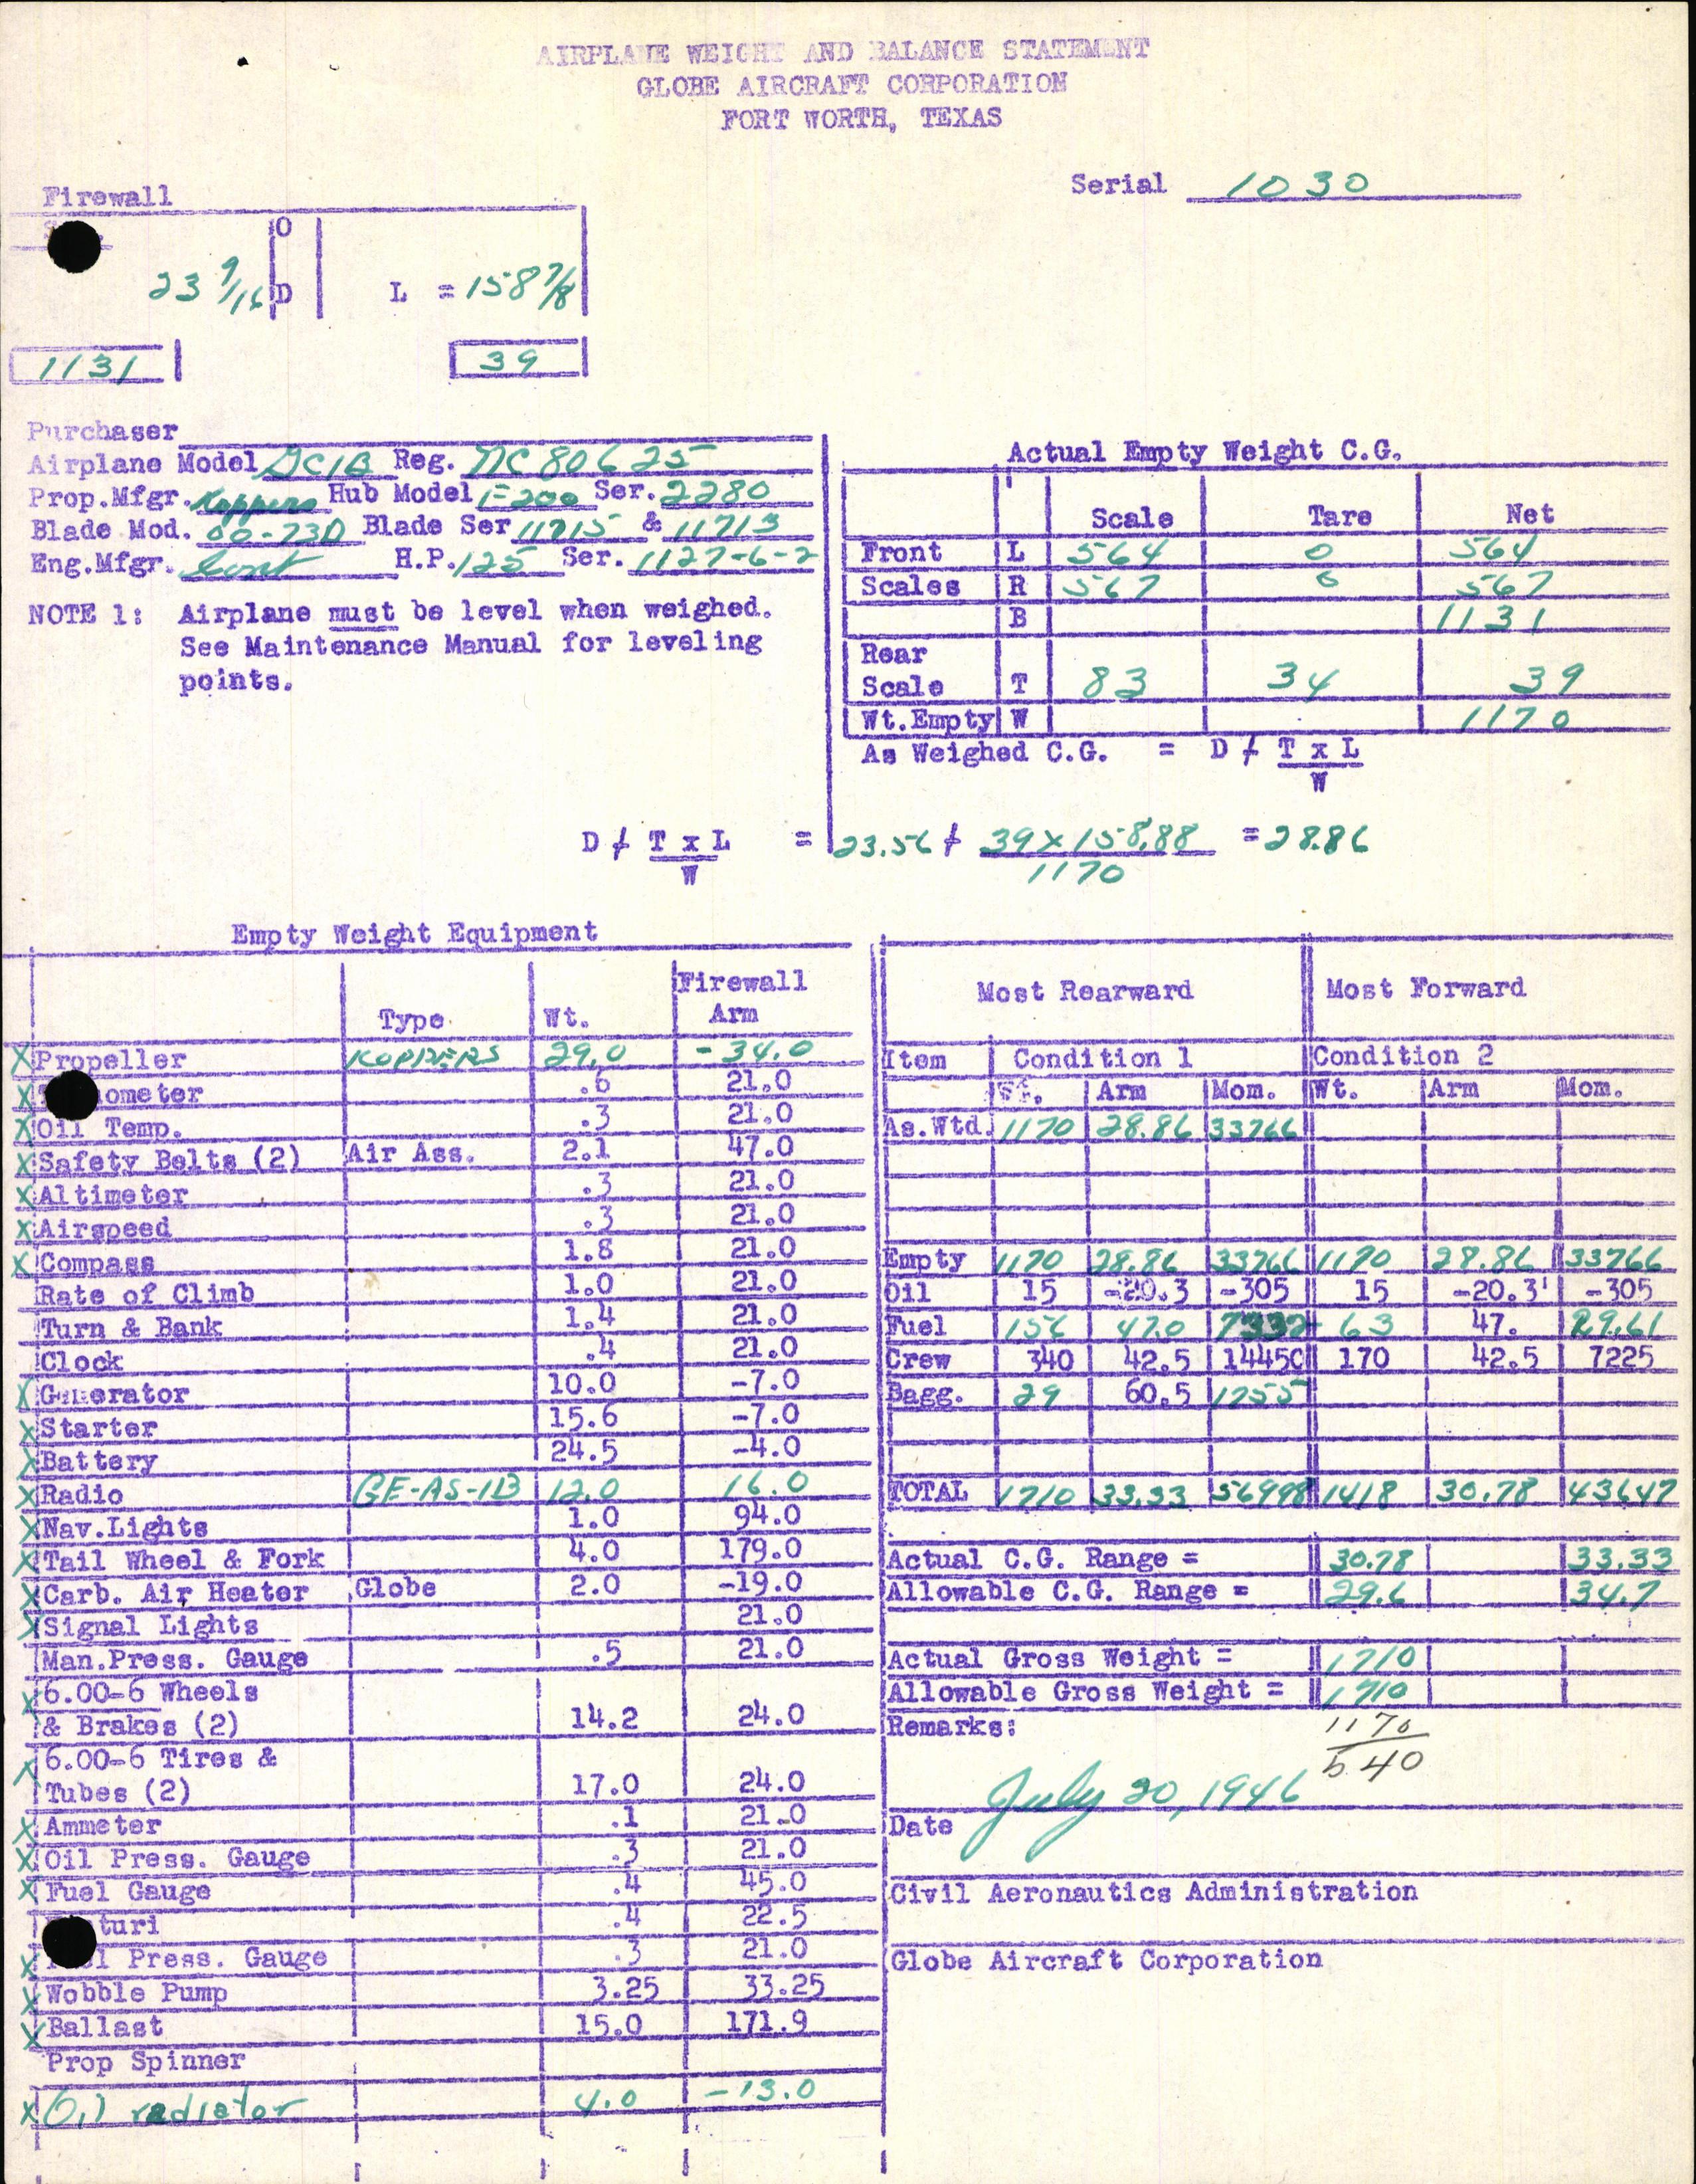 AIRPLANE WEIGHT AND BALANCE STATEMENT
GLOBE AIRCRAFT CORPORATION
FORT WORTH, TEXAS
Serial 1030
Firewall
O
23 9/16 D L = 158 7/8
1131 39
Purchaser
Airplane Model GC1B Reg. NC 80625
Prop.Mfgr. Koppers Hub Model F-200 Ser. 2280
Blade Mod. 00-73D Blade Ser 11715 & 11713
Eng.Mfgr. Cont H.P. 125 Ser. 1127-6-2
NOTE 1: Airplane must be level when weighed.
See Maintenance Manual for leveling
points.
Actual Empty Weight C.G.
Scale Tare Net
Front L 564 0 564
Scales R 567 0 567
B 1131
Rear
Scale T 83 34 39
Wt.Empty W 1170
As Weighed C.G. = D + T x L
W
D + T x L = 23.56 + 39 x 158.88 = 28.86
W 1170
Empty Weight Equipment
Type Wt. Firewall Arm
X Propeller KOPPERS 29.0 -34.0
X ometer .6 21.0
X Oil Temp. .3 21.0
X Safety Belts (2) Air Ass. 2.1 47.0
X Altimeter .3 21.0
X Airspeed .3 21.0
X Compass 1.8 21.0
Rate of Climb 1.0 21.0
Turn & Bank 1.4 21.0
Clock .4 21.0
X Generator 10.0 -7.0
X Starter 15.6 -7.0
X Battery 24.5 -4.0
X Radio GE-AS-1B 12.0 16.0
X Nav.Lights 1.0 94.0
X Tail Wheel & Fork 4.0 179.0
X Carb. Air Heater Globe 2.0 -19.0
X Signal Lights 21.0
Man.Press. Gauge .5 21.0
X 6.00-6 Wheels
& Brakes (2) 14.2 24.0
X 6.00-6 Tires &
Tubes (2) 17.0 24.0
X Ammeter .1 21.0
X Oil Press. Gauge .3 21.0
X Fuel Gauge .4 45.0
turi .4 22.5
X l Press. Gauge .3 21.0
X Wobble Pump 3.25 33.25
X Ballast 15.0 171.9
Prop Spinner
X Oil radiator 4.0 -13.0
Most Rearward Most Forward
Item Condition 1 Condition 2
Wt. Arm Mom. Wt. Arm Mom.
As.Wtd. 1170 28.86 33766
Empty 1170 28.86 33766 1170 28.86 33766
Oil 15 -20.3 -305 15 -20.3 -305
Fuel 156 47.0 7332 63 47. 29.61
Crew 340 42.5 14450 170 42.5 7225
Bagg. 29 60.5 1755
TOTAL 1710 33.33 56998 1418 30.78 43647
Actual C.G. Range = 30.78 33.33
Allowable C.G. Range = 29.6 34.7
Actual Gross Weight = 1710
Allowable Gross Weight = 1710
Remarks: 1170
540
July 20, 1946
Date
Civil Aeronautics Administration
Globe Aircraft Corporation